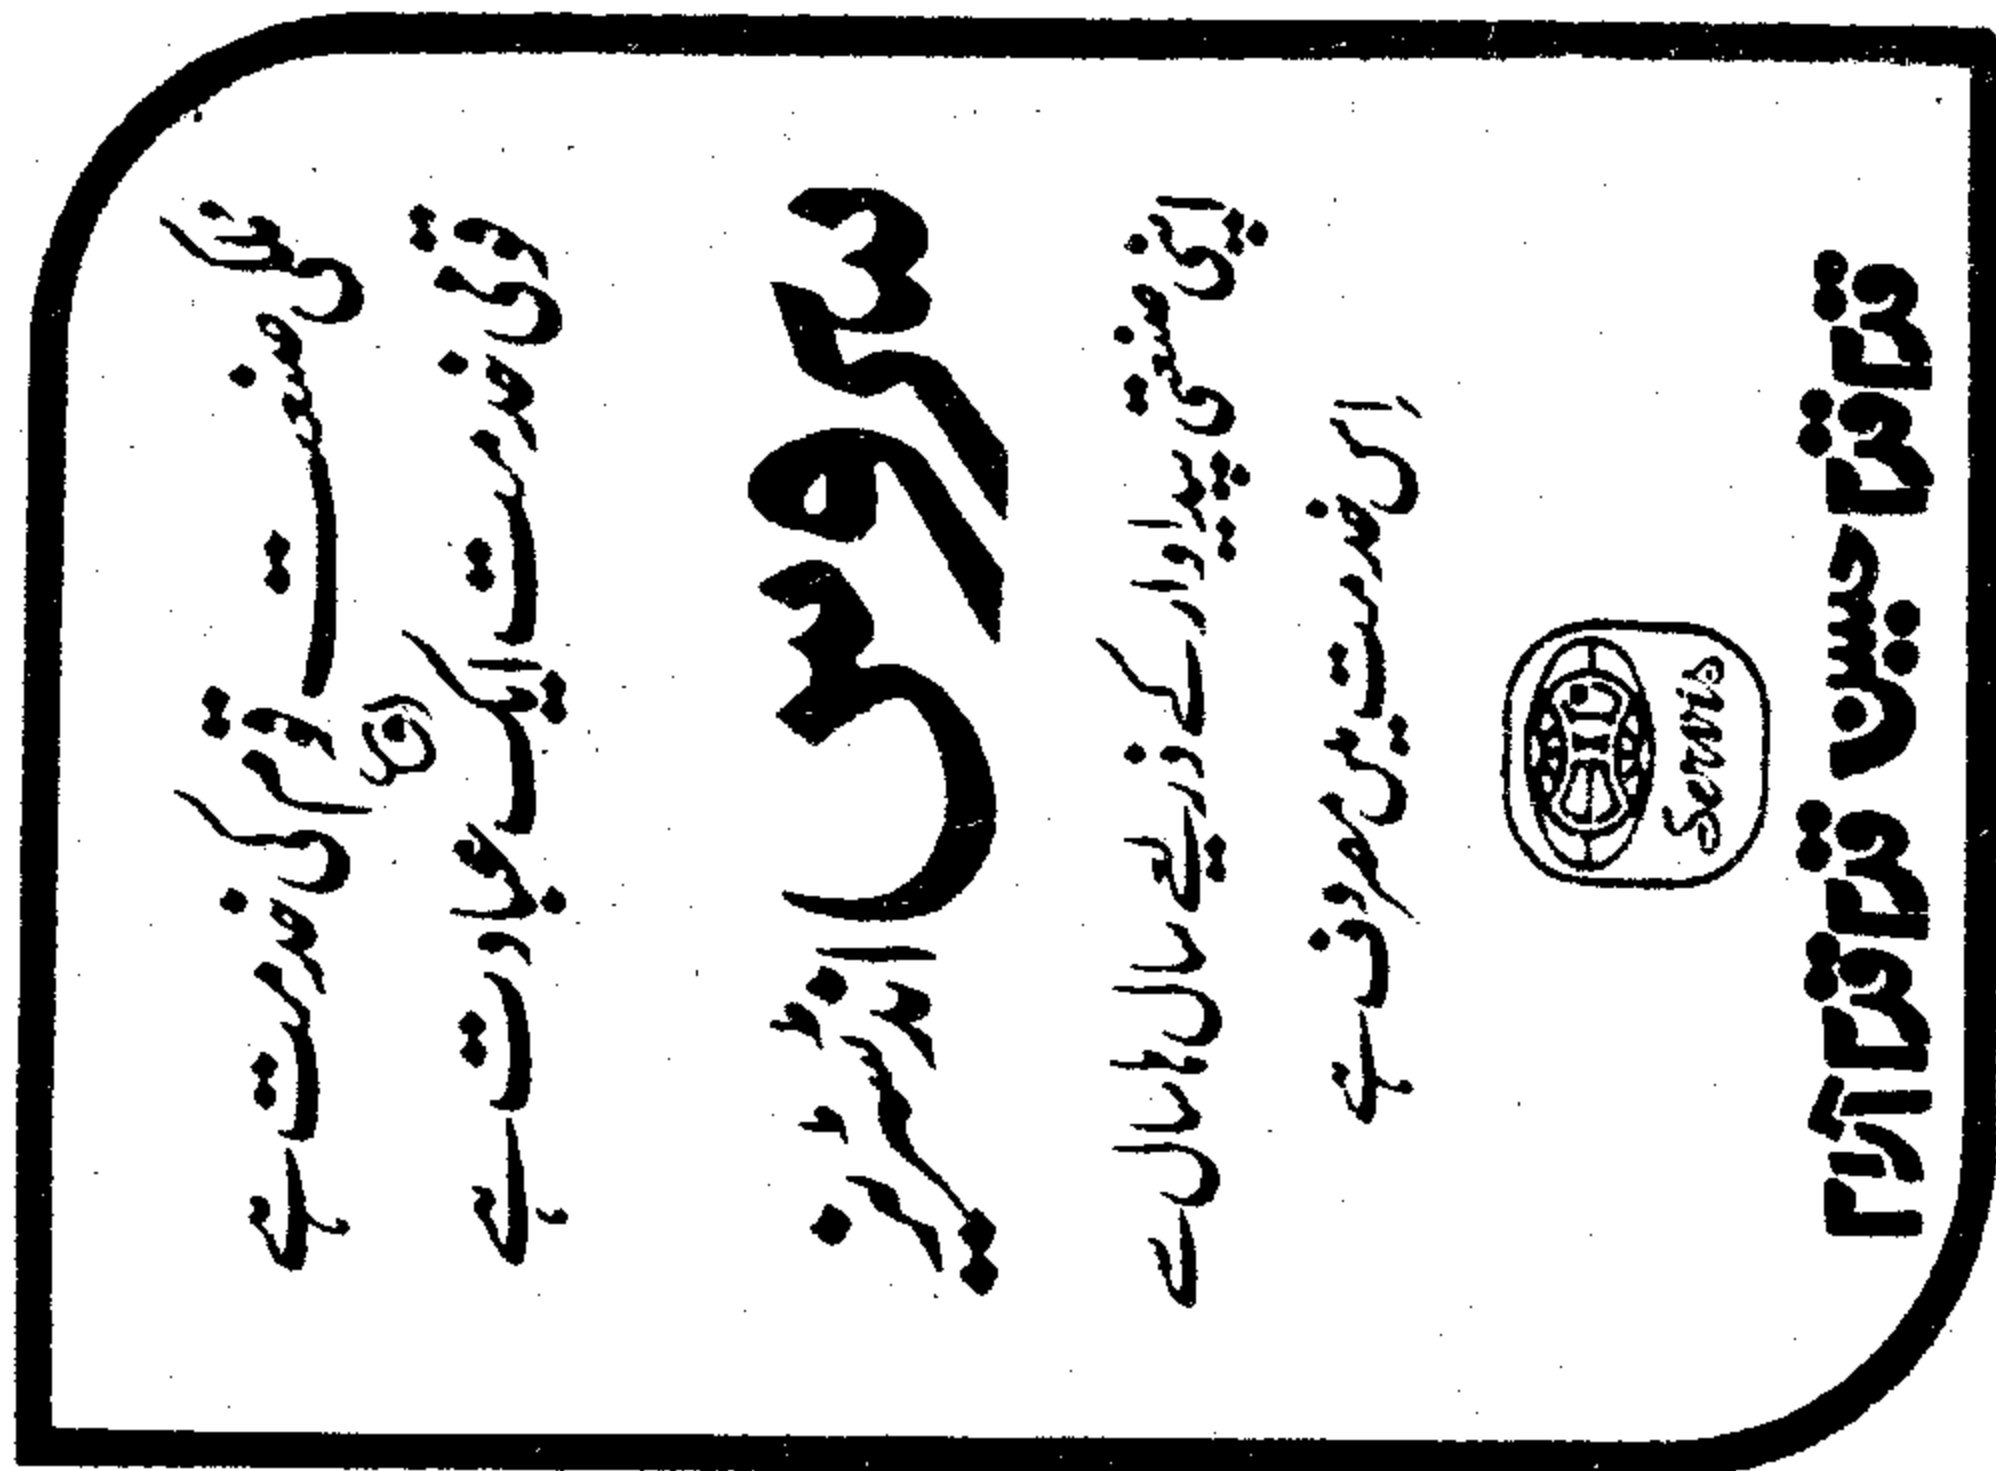 ملک کی صنعت و ترقی قوم کی خدمت ہے
قومی خدمت ایک عبادت ہے
اور
سروس انڈسٹریز
اپنی صنعتی پیداوار کے ذریعے سال ہا سال سے
اس خدمت میں مصروف ہے
Servis
قدم قدم حسین قدم قدم آرام